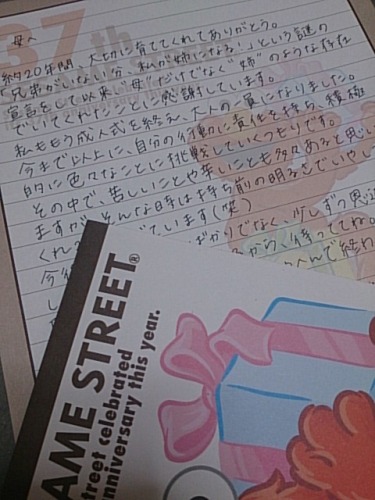 37th
母へ
約20年間、大切に育ててくれてありがとう。
「兄弟がいない分、私が姉になる！」という謎の
宣言をして以来、"母"だけでなく"姉"のような存在
でいてくれたことに感謝しています。
私ももう成人式を終え、大人の一員になりました。
今まで以上に、自分の行動に責任を持ち、積極
的に色々なことに挑戦していくつもりです。
その中で、苦しいことや辛いことも多々あると思い
ますが、そんな時は持ち前の明るさでいやし
くれる ています(笑)
今後 ばかりでなく、少しずつ恩返
し るから、待っててね。
へんで終わ
AME STREET®
treet celebrated
nniversary this year.